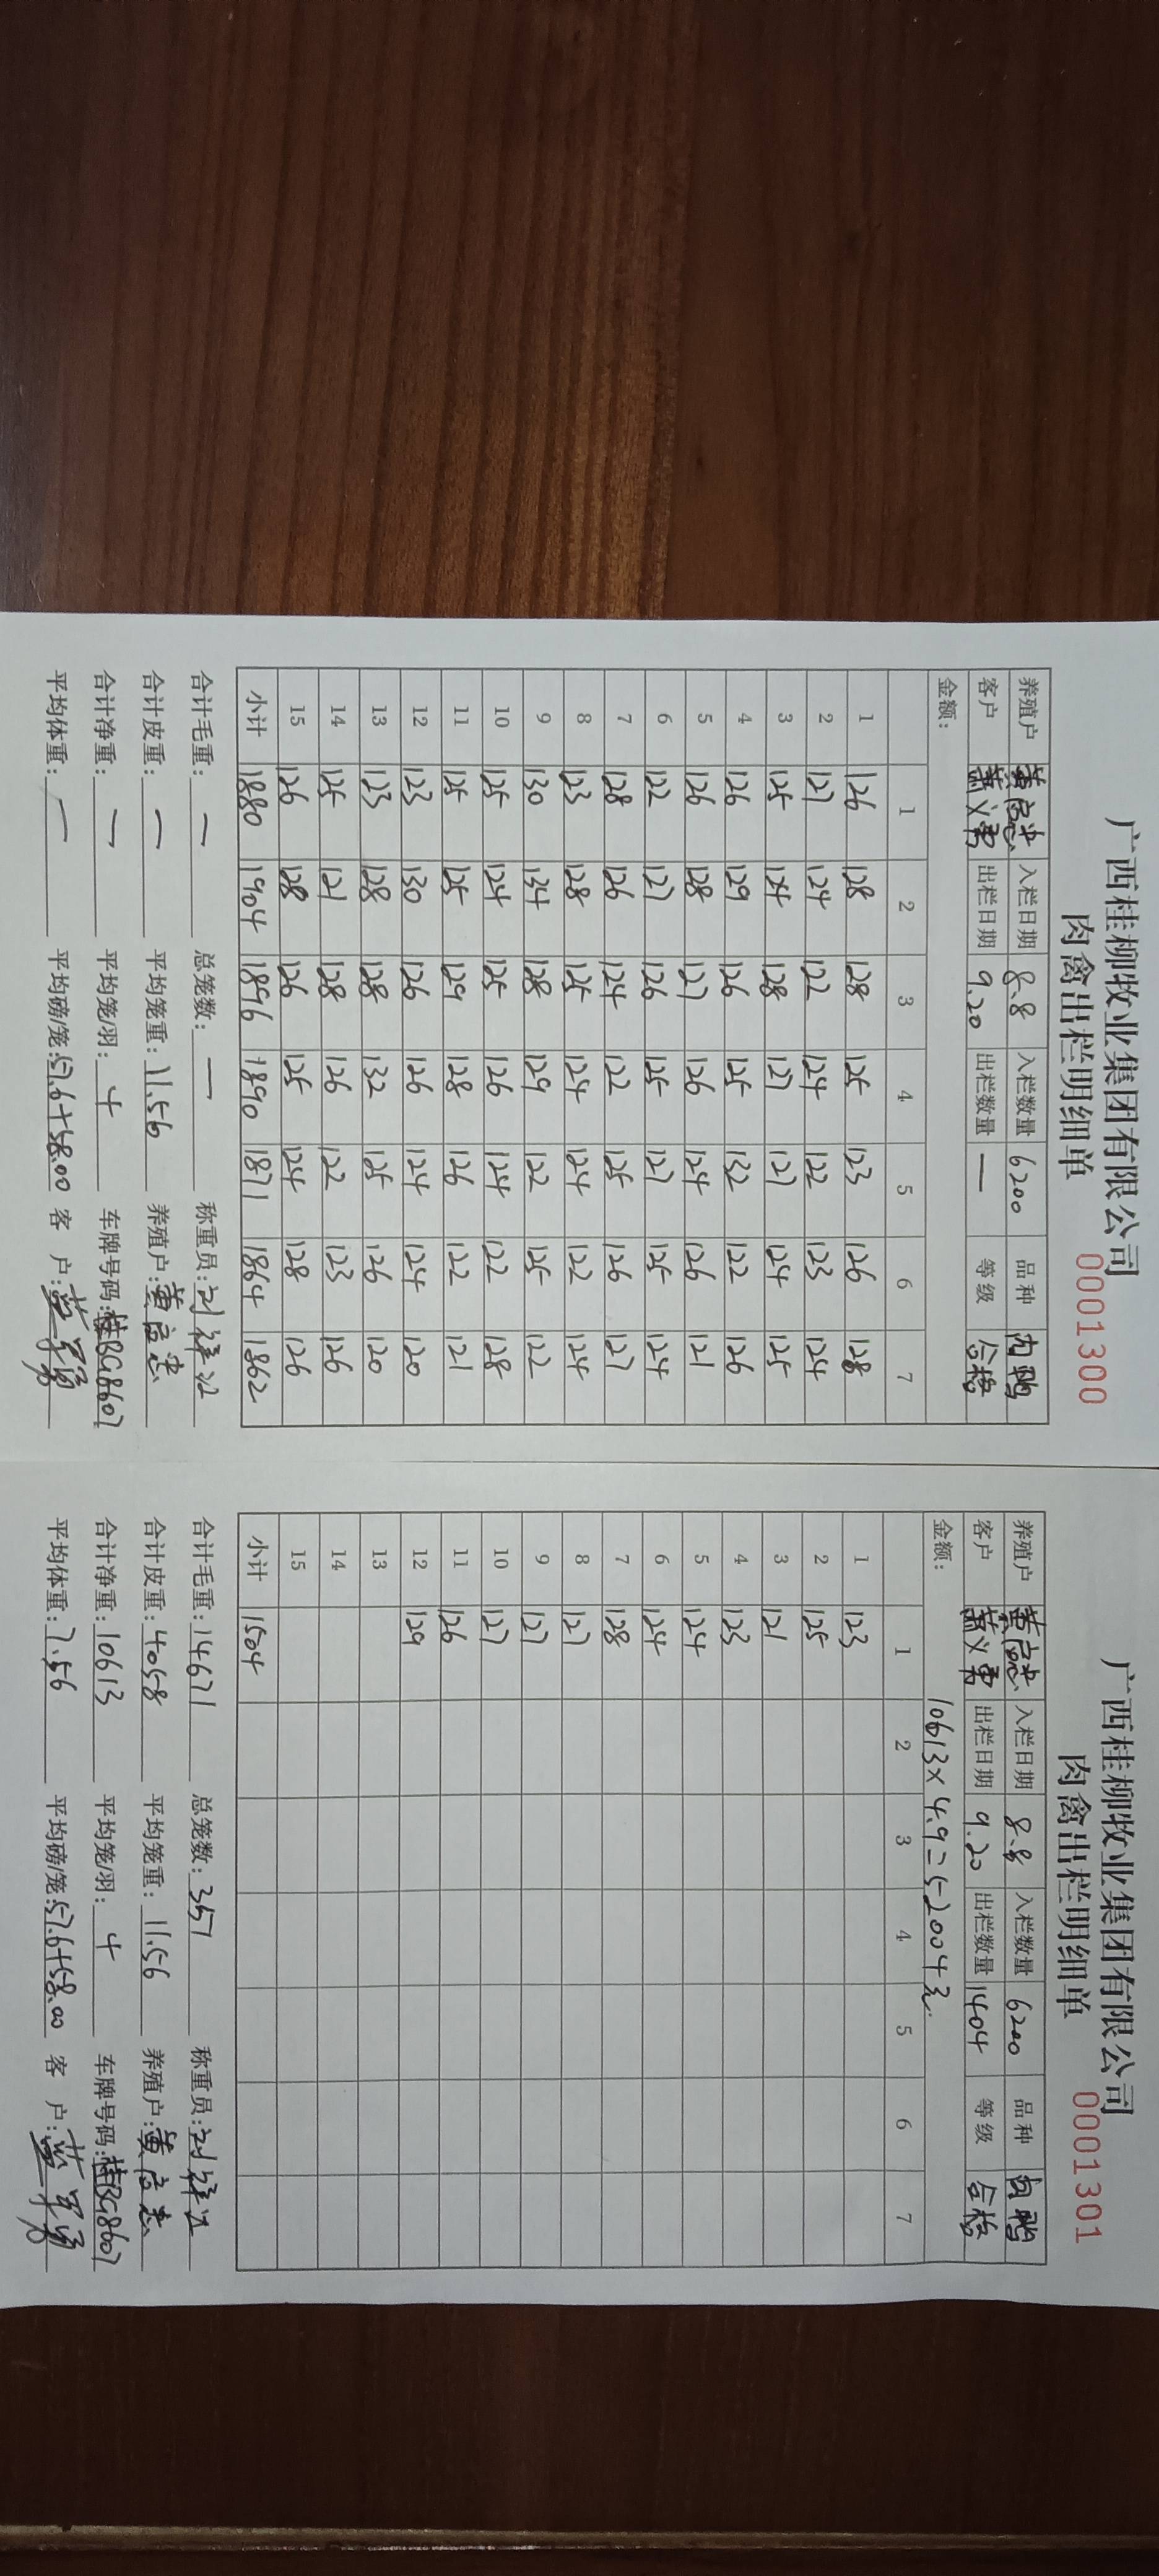 广西桂柳牧业集团有限公司
肉禽出栏明细单 0001300
养殖户 入栏日期 8.8 入栏数量 6200 品种 肉鸭
客户 出栏日期 9.20 出栏数量 — 等级 合格
金额:
1 2 3 4 5 6 7
1 126 128 128 125 123 126 128
2 127 124 122 124 122 123 124
3 125 124 128 127 127 124 125
4 126 129 126 125 132 122 126
5 126 128 127 126 124 126 121
6 122 127 126 125 127 125 124
7 128 126 124 122 125 126 127
8 123 128 125 124 124 122 124
9 130 134 128 129 122 125 122
10 125 124 125 126 124 122 128
11 125 125 129 128 126 122 121
12 123 130 126 126 124 124 120
13 123 128 128 132 125 126 120
14 125 121 128 126 122 123 126
15 126 128 126 125 124 128 126
小计 1880 1904 1896 1890 1871 1864 1862
合计毛重: — 总笼数: — 称重员:
合计皮重: — 平均笼重: 11.56 养殖户:
合计净重: — 平均笼/羽: 4 车牌号码: 桂BG8607
平均体重: — 平均磅/笼: 57.6+58.00 客 户:
广西桂柳牧业集团有限公司
肉禽出栏明细单 0001301
养殖户 入栏日期 8.8 入栏数量 6200 品种 肉鸭
客户 出栏日期 9.20 出栏数量 1404 等级 合格
金额: 10613×4.9=52004元
1 2 3 4 5 6 7
1 123
2 125
3 121
4 123
5 124
6 124
7 128
8 127
9 127
10 127
11 126
12 129
13
14
15
小计 1504
合计毛重: 14671 总笼数: 351 称重员:
合计皮重: 4058 平均笼重: 11.56 养殖户:
合计净重: 10613 平均笼/羽: 4 车牌号码: 桂BG8607
平均体重: 7.56 平均磅/笼: 57.6+58.00 客 户: